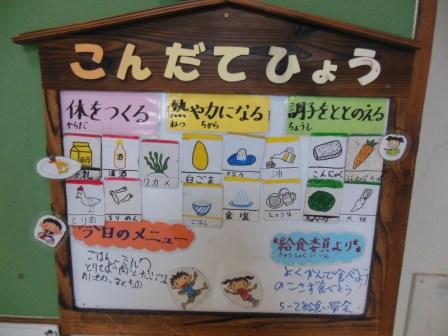 こんだてひょう
体をつくる
からだ
熱や力になる
ねつ ちから
調子をととのえる
ちょうし
牛乳 清酒 ワカメ 白ごま さとう 油 こんにゃく にんじん
とり肉 ちりめん ごはん 食塩 しょうゆ 大根
今日のメニュー
ごはん、ミルク
給食委員より
きゅうしょくいいん
よくかんで食べよう
のこさず食べよう!